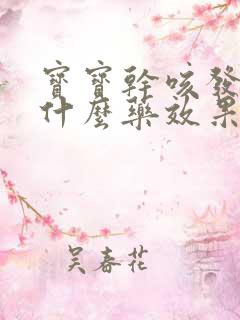 寶寶幹咳發
什麼藥效果
吴春花